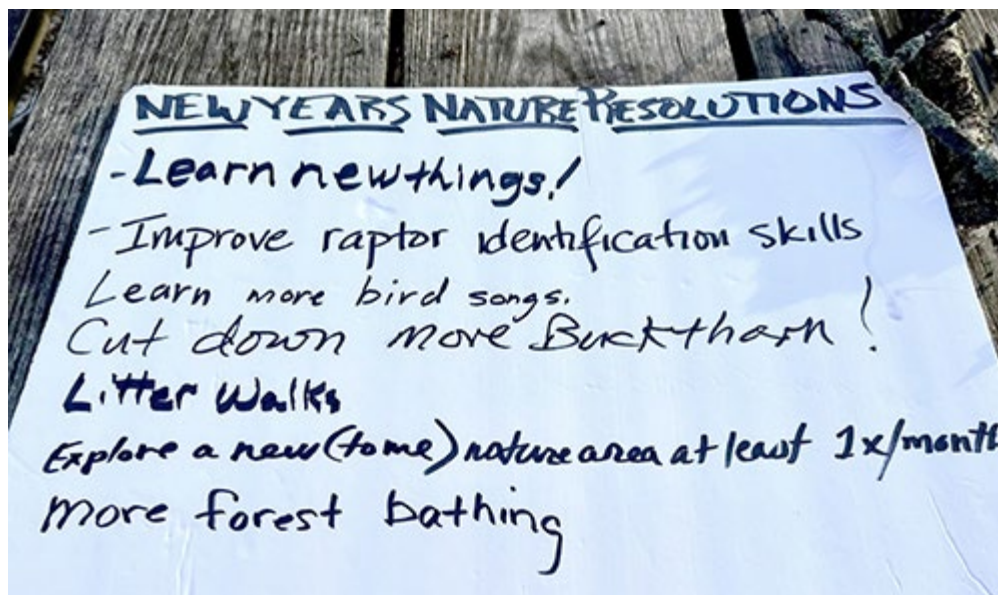 NEW YEARS NATURE RESOLUTIONS
- Learn new things!
- Improve raptor identification skills
Learn more bird songs.
Cut down more Buckthorn!
Litter Walks
Explore a new (to me) nature area at least 1x/month
More forest bathing